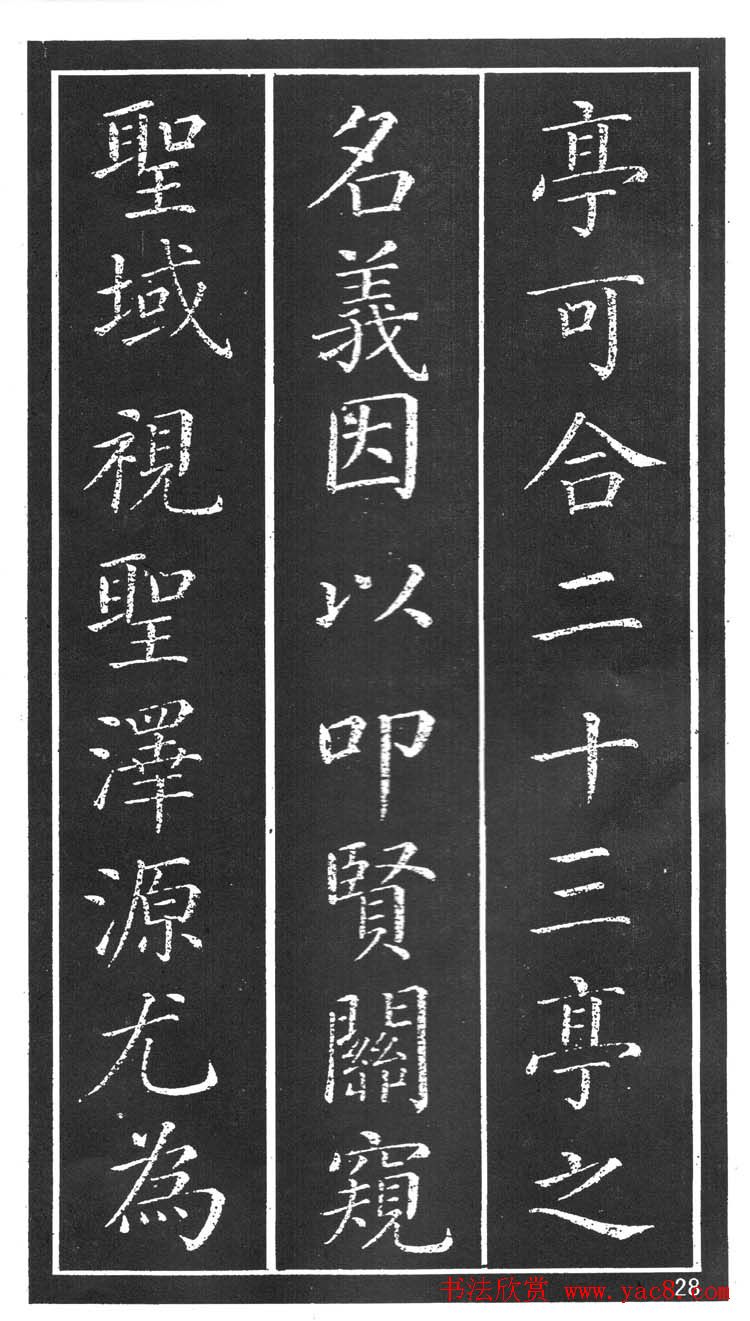 亭可合二十三亭之
名義因以叩賢關窺
聖域視聖澤源尤為
书法欣赏 www.yac8.com
28